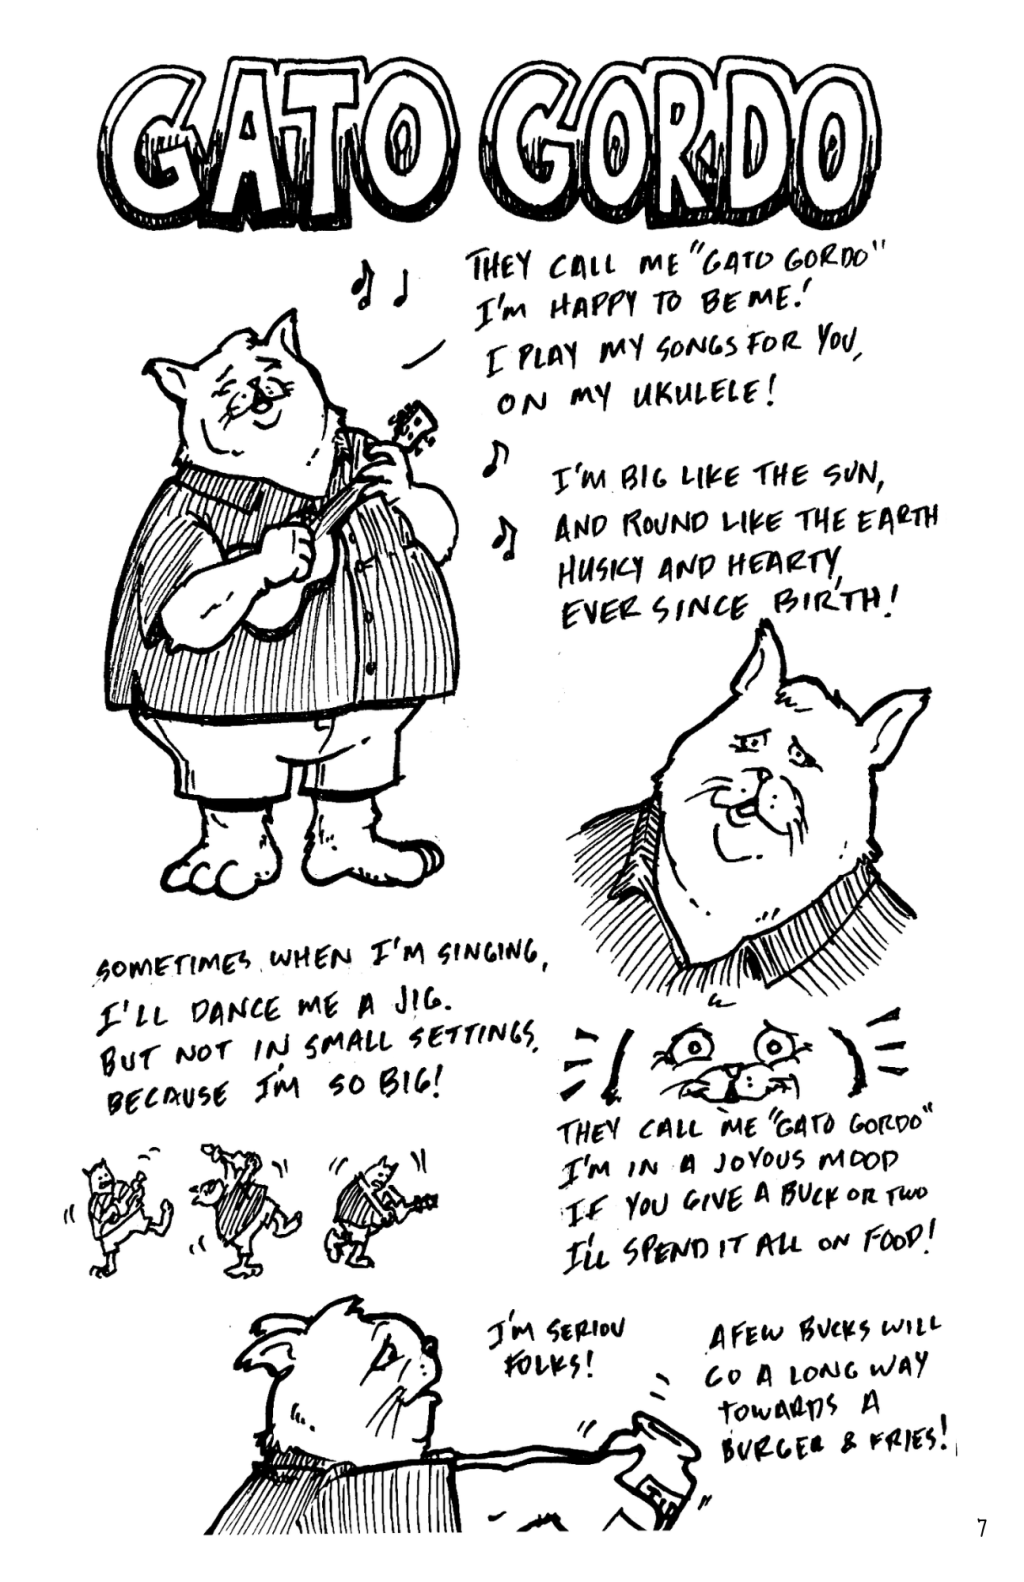 GATO GORDO
THEY CALL ME "GATO GORDO"
I'M HAPPY TO BE ME!
I PLAY MY SONGS FOR YOU,
ON MY UKULELE!
I'M BIG LIKE THE SUN,
AND ROUND LIKE THE EARTH
HUSKY AND HEARTY,
EVER SINCE BIRTH!
SOMETIMES WHEN I'M SINGING,
I'LL DANCE ME A JIG.
BUT NOT IN SMALL SETTINGS,
BECAUSE I'M SO BIG!
THEY CALL ME "GATO GORDO"
I'M IN A JOYOUS MOOD
IF YOU GIVE A BUCK OR TWO
I'LL SPEND IT ALL ON FOOD!
I'M SERIOU
FOLKS!
A FEW BUCKS WILL
GO A LONG WAY
TOWARDS A
BURGER & FRIES!
TIP
7